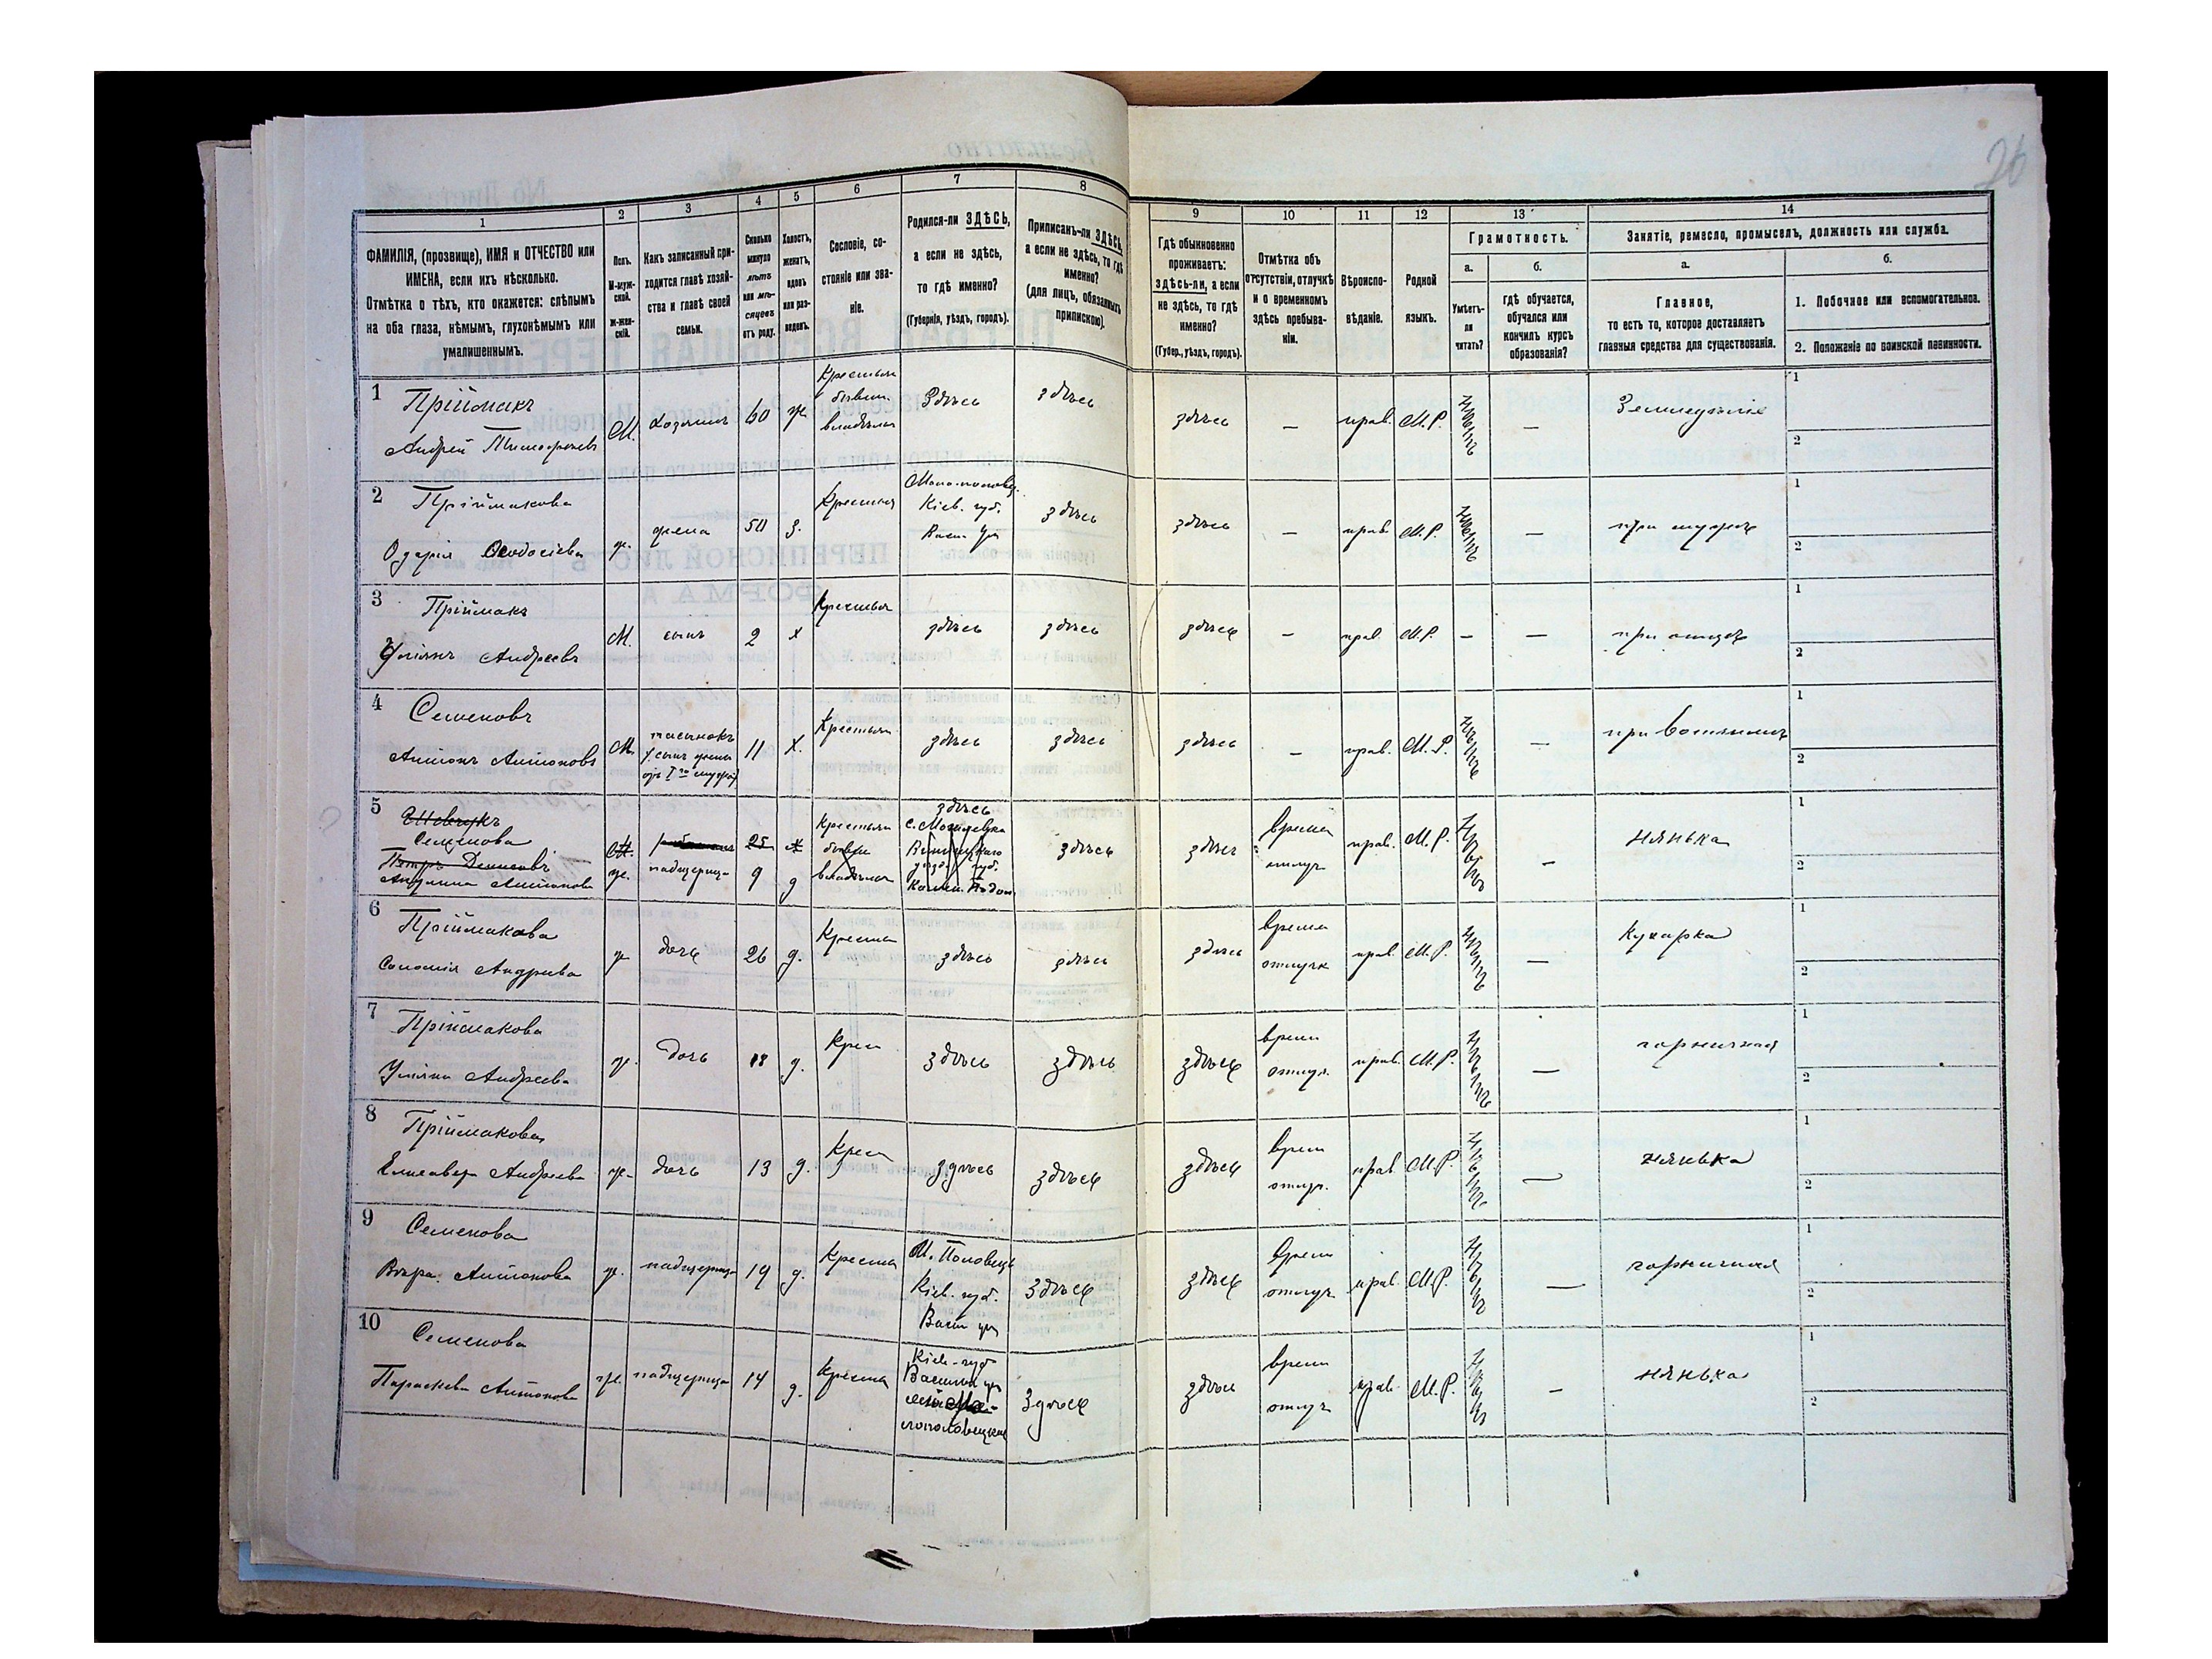 26
1
2
3
4
5
6
7
8
9
10
11
12
13
14
ФАМИЛІЯ, (прозвище), ИМЯ и ОТЧЕСТВО или
ИМЕНА, если ихъ нѣсколько.
Отмѣтка о тѣхъ, кто окажется: слѣпымъ
на оба глаза, нѣмымъ, глухонѣмымъ или
умалишеннымъ.
Полъ.
М-муж-
ской.
ж-жен-
скій.
Какъ записанный при-
ходится главѣ хозяй-
ства и главѣ своей
семьи.
Сколько
минуло
лѣтъ
или мѣ-
сяцевъ
отъ роду.
Холостъ,
женатъ,
вдовъ
или раз-
веденъ.
Сословіе, со-
стояніе или зва-
ніе.
Родился-ли ЗДѢСЬ,
а если не здѣсь,
то гдѣ именно?
(Губернія, уѣздъ, городъ).
Приписанъ-ли ЗДѢСЬ,
а если не здѣсь, то гдѣ
именно?
(для лицъ, обязанныхъ
припискою).
Гдѣ обыкновенно
проживаетъ:
здѣсь-ли, а если
не здѣсь, то гдѣ
именно?
(Губер., уѣздъ, городъ).
Отмѣтка объ
отсутствіи, отлучкѣ
и о временномъ
здѣсь пребыва-
ніи.
Вѣроиспо-
вѣданіе.
Родной
языкъ.
Грамотность.
а.
Умѣетъ-
ли
читать?
б.
гдѣ обучается,
обучался или
кончилъ курсъ
образованія?
Занятіе, ремесло, промыселъ, должность или служба.
а.
Главное,
то есть то, которое доставляетъ
главныя средства для существованія.
б.
1. Побочное или вспомогательное.
2. Положеніе по воинской повинности.
1
Пріймакъ
Андрей Тимофеевъ
М.
хозяинъ
60
ж.
Крестьян
бывш.
владѣльч
Здѣсь
здѣсь
здѣсь
—
прав.
М.Р.
нѣтъ
—
Земледѣліе
1
2
2
Пріймакова
Одарія Феодосіева
ж.
жена
50
з.
Кіев. губ.
здѣсь
здѣсь
—
прав.
М.Р.
нѣтъ
—
при мужѣ
1
2
3
Пріймакъ
Андреевъ
М.
сынъ
2
х
Крестьян
здѣсь
здѣсь
здѣсь
—
прав.
М.Р.
—
—
при отцѣ
1
2
4
Семеновъ
Антонъ Антоновъ
М.
пасынокъ
11
х.
Крестьян
здѣсь
здѣсь
здѣсь
—
прав.
М.Р.
нѣтъ
—
при вотчимѣ
1
2
5
Шевчукъ
Семенова
Петръ Денисовъ
Антонова
ж.
падчерица
25
9
д
Крестьян
бывш
владѣльч
здѣсь
с. Могилевка
Винницкаго
уѣзд. губ.
здѣсь
здѣсь
времен
отлуч.
прав.
М.Р.
нѣтъ
—
нянька
1
2
6
Пріймакова
Соломія Андреева
ж
дочь
26
д.
Крестья
здѣсь
здѣсь
здѣсь
времен
отлучк
прав.
М.Р.
нѣтъ
—
Кухарка
1
2
7
Пріймакова
Уляна Андреева
ж.
дочь
18
д.
Крест
здѣсь
здѣсь
здѣсь
времен
отлуч.
прав.
М.Р.
нѣтъ
—
горничная
1
2
8
Пріймакова
Елисавета Андреева
ж.
дочь
13
д.
Крест
здѣсь
здѣсь
здѣсь
врем
отлуч.
прав
М.Р.
нѣтъ
—
нянька
1
2
9
Семенова
Вѣра Антонова
ж.
падчерица
19
д.
Крестья
М. Половецк
Кіев. губ.
Васил уѣз
здѣсь
здѣсь
времен
отлуч
прав.
М.Р.
нѣтъ
—
горничная
1
2
10
Семенова
Параскева Антонова
ж.
падчерица
14
д.
Крестья
Кіев. губ
Васильк уѣз
здѣсь
здѣсь
времен
отлуч
прав.
М.Р.
нѣтъ
—
нянька
1
2